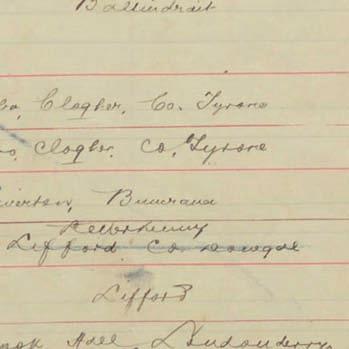 Ballindrait
Clogher, Co. Tyrone
Clogher, Co, Tyrone
Buncrana
Letterkenny
Lifford Co. Donegal
Lifford
Hall, Londonderry